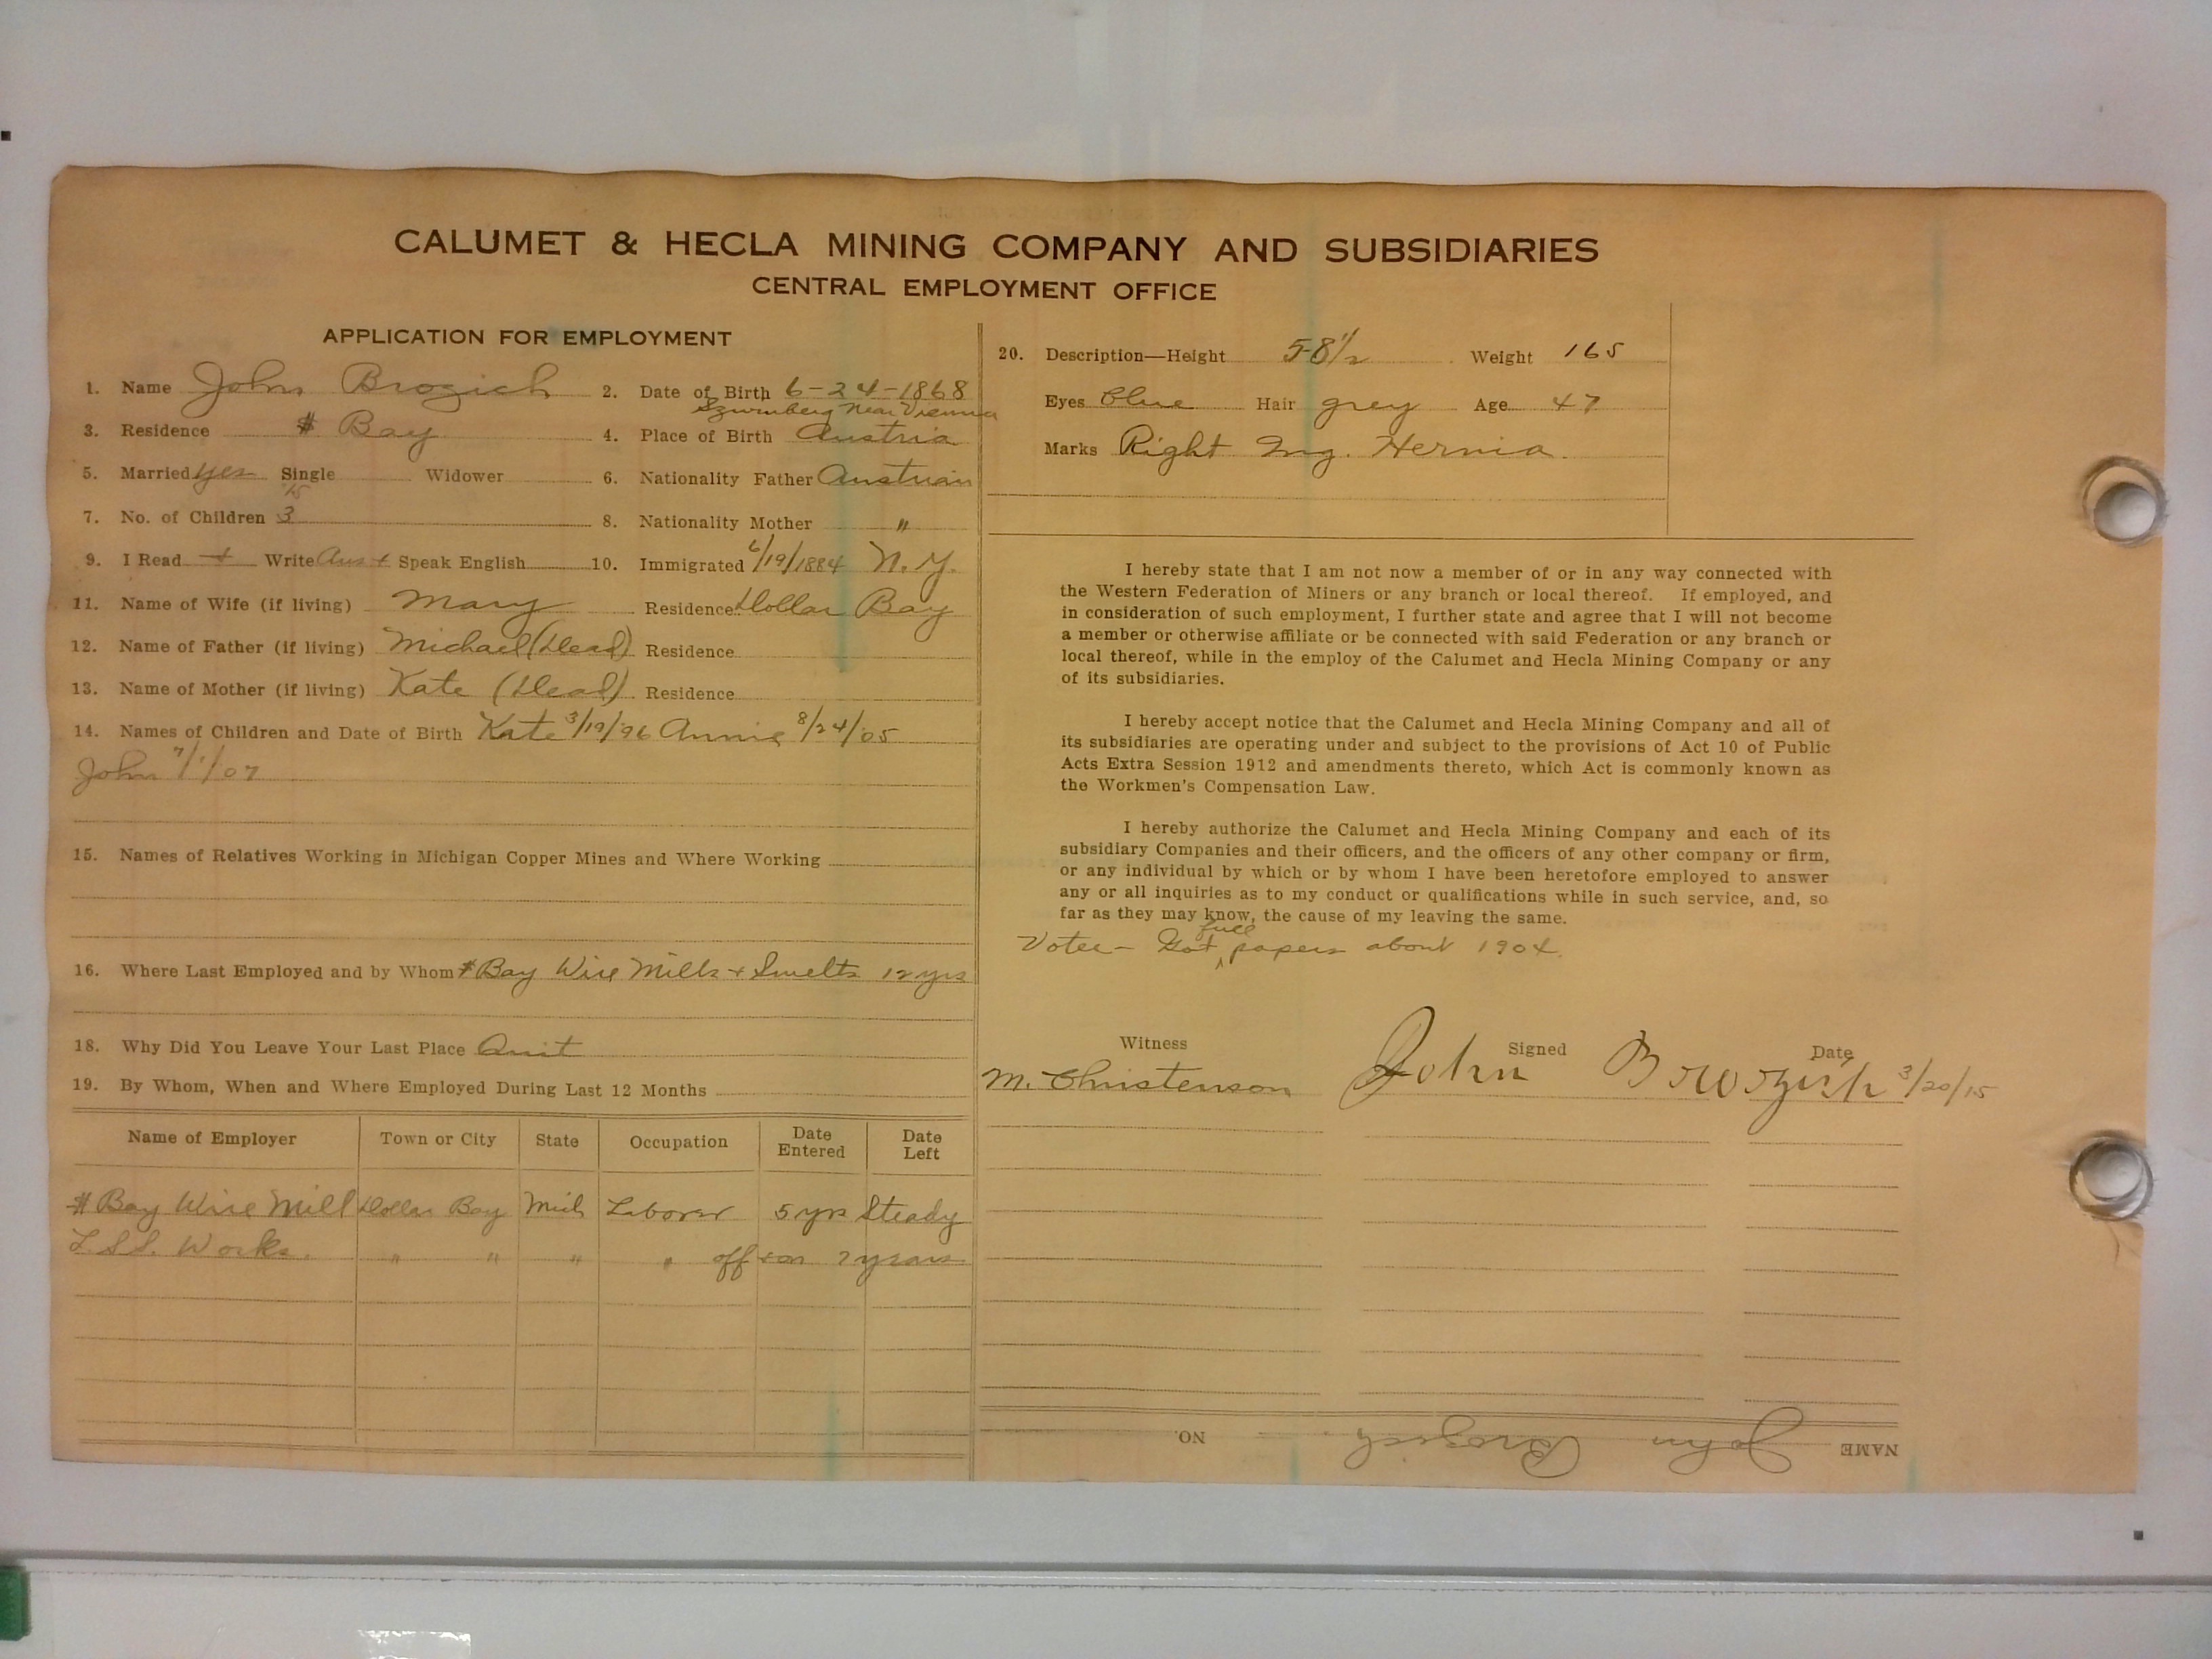 CALUMET & HECLA MINING COMPANY AND SUBSIDIARIES
CENTRAL EMPLOYMENT OFFICE
APPLICATION FOR EMPLOYMENT
1. Name John Brozich 2. Date of Birth 6-24-1868
near Vienna
3. Residence $ Bay 4. Place of Birth Austria
5. Married yes Single Widower 6. Nationality Father Austrian
7. No. of Children 3 8. Nationality Mother "
9. I Read + Write Aus + Speak English 10. Immigrated 6/19/1884 N.Y.
11. Name of Wife (if living) Mary Residence Dollar Bay
12. Name of Father (if living) Michael (Dead) Residence
13. Name of Mother (if living) Kate (Dead) Residence
14. Names of Children and Date of Birth Kate 3/19/96 Annie 8/24/05
John 7/1/07
15. Names of Relatives Working in Michigan Copper Mines and Where Working
16. Where Last Employed and by Whom $ Bay Wire Mills + Smelts 12 yrs
18. Why Did You Leave Your Last Place Quit
19. By Whom, When and Where Employed During Last 12 Months
Name of Employer Town or City State Occupation Date Entered Date Left
$ Bay Wire Mill Dollar Bay Mich Laborer 5 yrs Steady
L.S.S. Works. " " " " off + on 7 years
20. Description—Height 5-8 1/2 Weight 165
Eyes Blue Hair grey Age 47
Marks Right Ing. Hernia.
I hereby state that I am not now a member of or in any way connected with
the Western Federation of Miners or any branch or local thereof. If employed, and
in consideration of such employment, I further state and agree that I will not become
a member or otherwise affiliate or be connected with said Federation or any branch or
local thereof, while in the employ of the Calumet and Hecla Mining Company or any
of its subsidiaries.
I hereby accept notice that the Calumet and Hecla Mining Company and all of
its subsidiaries are operating under and subject to the provisions of Act 10 of Public
Acts Extra Session 1912 and amendments thereto, which Act is commonly known as
the Workmen's Compensation Law.
I hereby authorize the Calumet and Hecla Mining Company and each of its
subsidiary Companies and their officers, and the officers of any other company or firm,
or any individual by which or by whom I have been heretofore employed to answer
any or all inquiries as to my conduct or qualifications while in such service, and, so
far as they may know, the cause of my leaving the same.
Voter - Got full papers about 1904.
Witness Signed Date
M. Christenson John Browzich 3/20/15
NAME John Brozich NO.